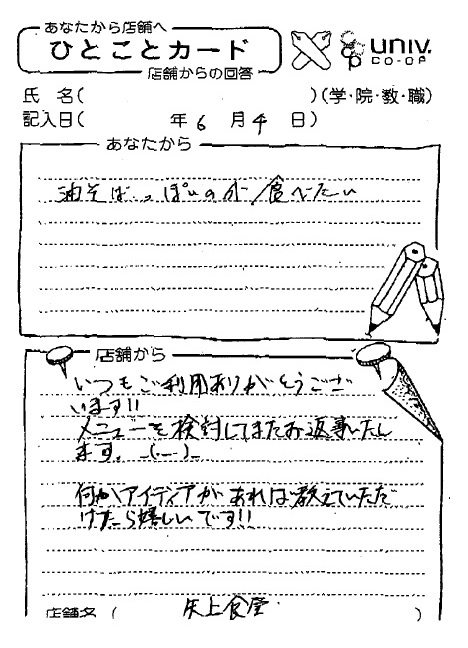 あなたから店舗へ
ひとことカード
店舗からの回答
univ.
CO-OP
氏 名( )(学・院・教・職)
記入日( 年 6 月 4 日)
あなたから
油そばっぽいのが食べたい
店舗から
いつもご利用ありがとうござ
います!!
メニューを検討してまたお返事いたし
ます。_(._.)_
何かアイディアがあれば教えていただ
けたら嬉しいです!!
店舗名 ( 矢上食堂 )